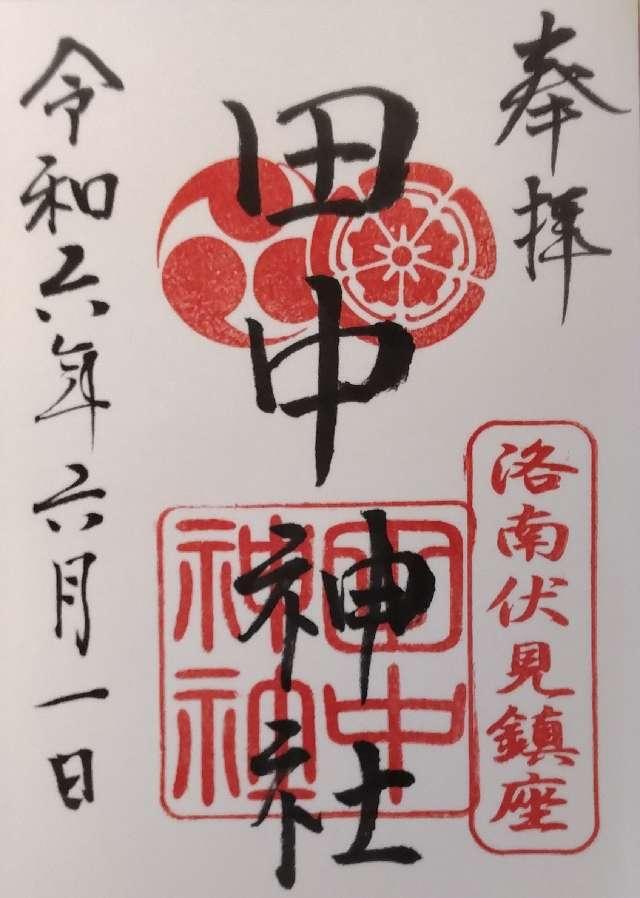 奉拝
洛南伏見鎮座
田中神社
令和六年六月一日